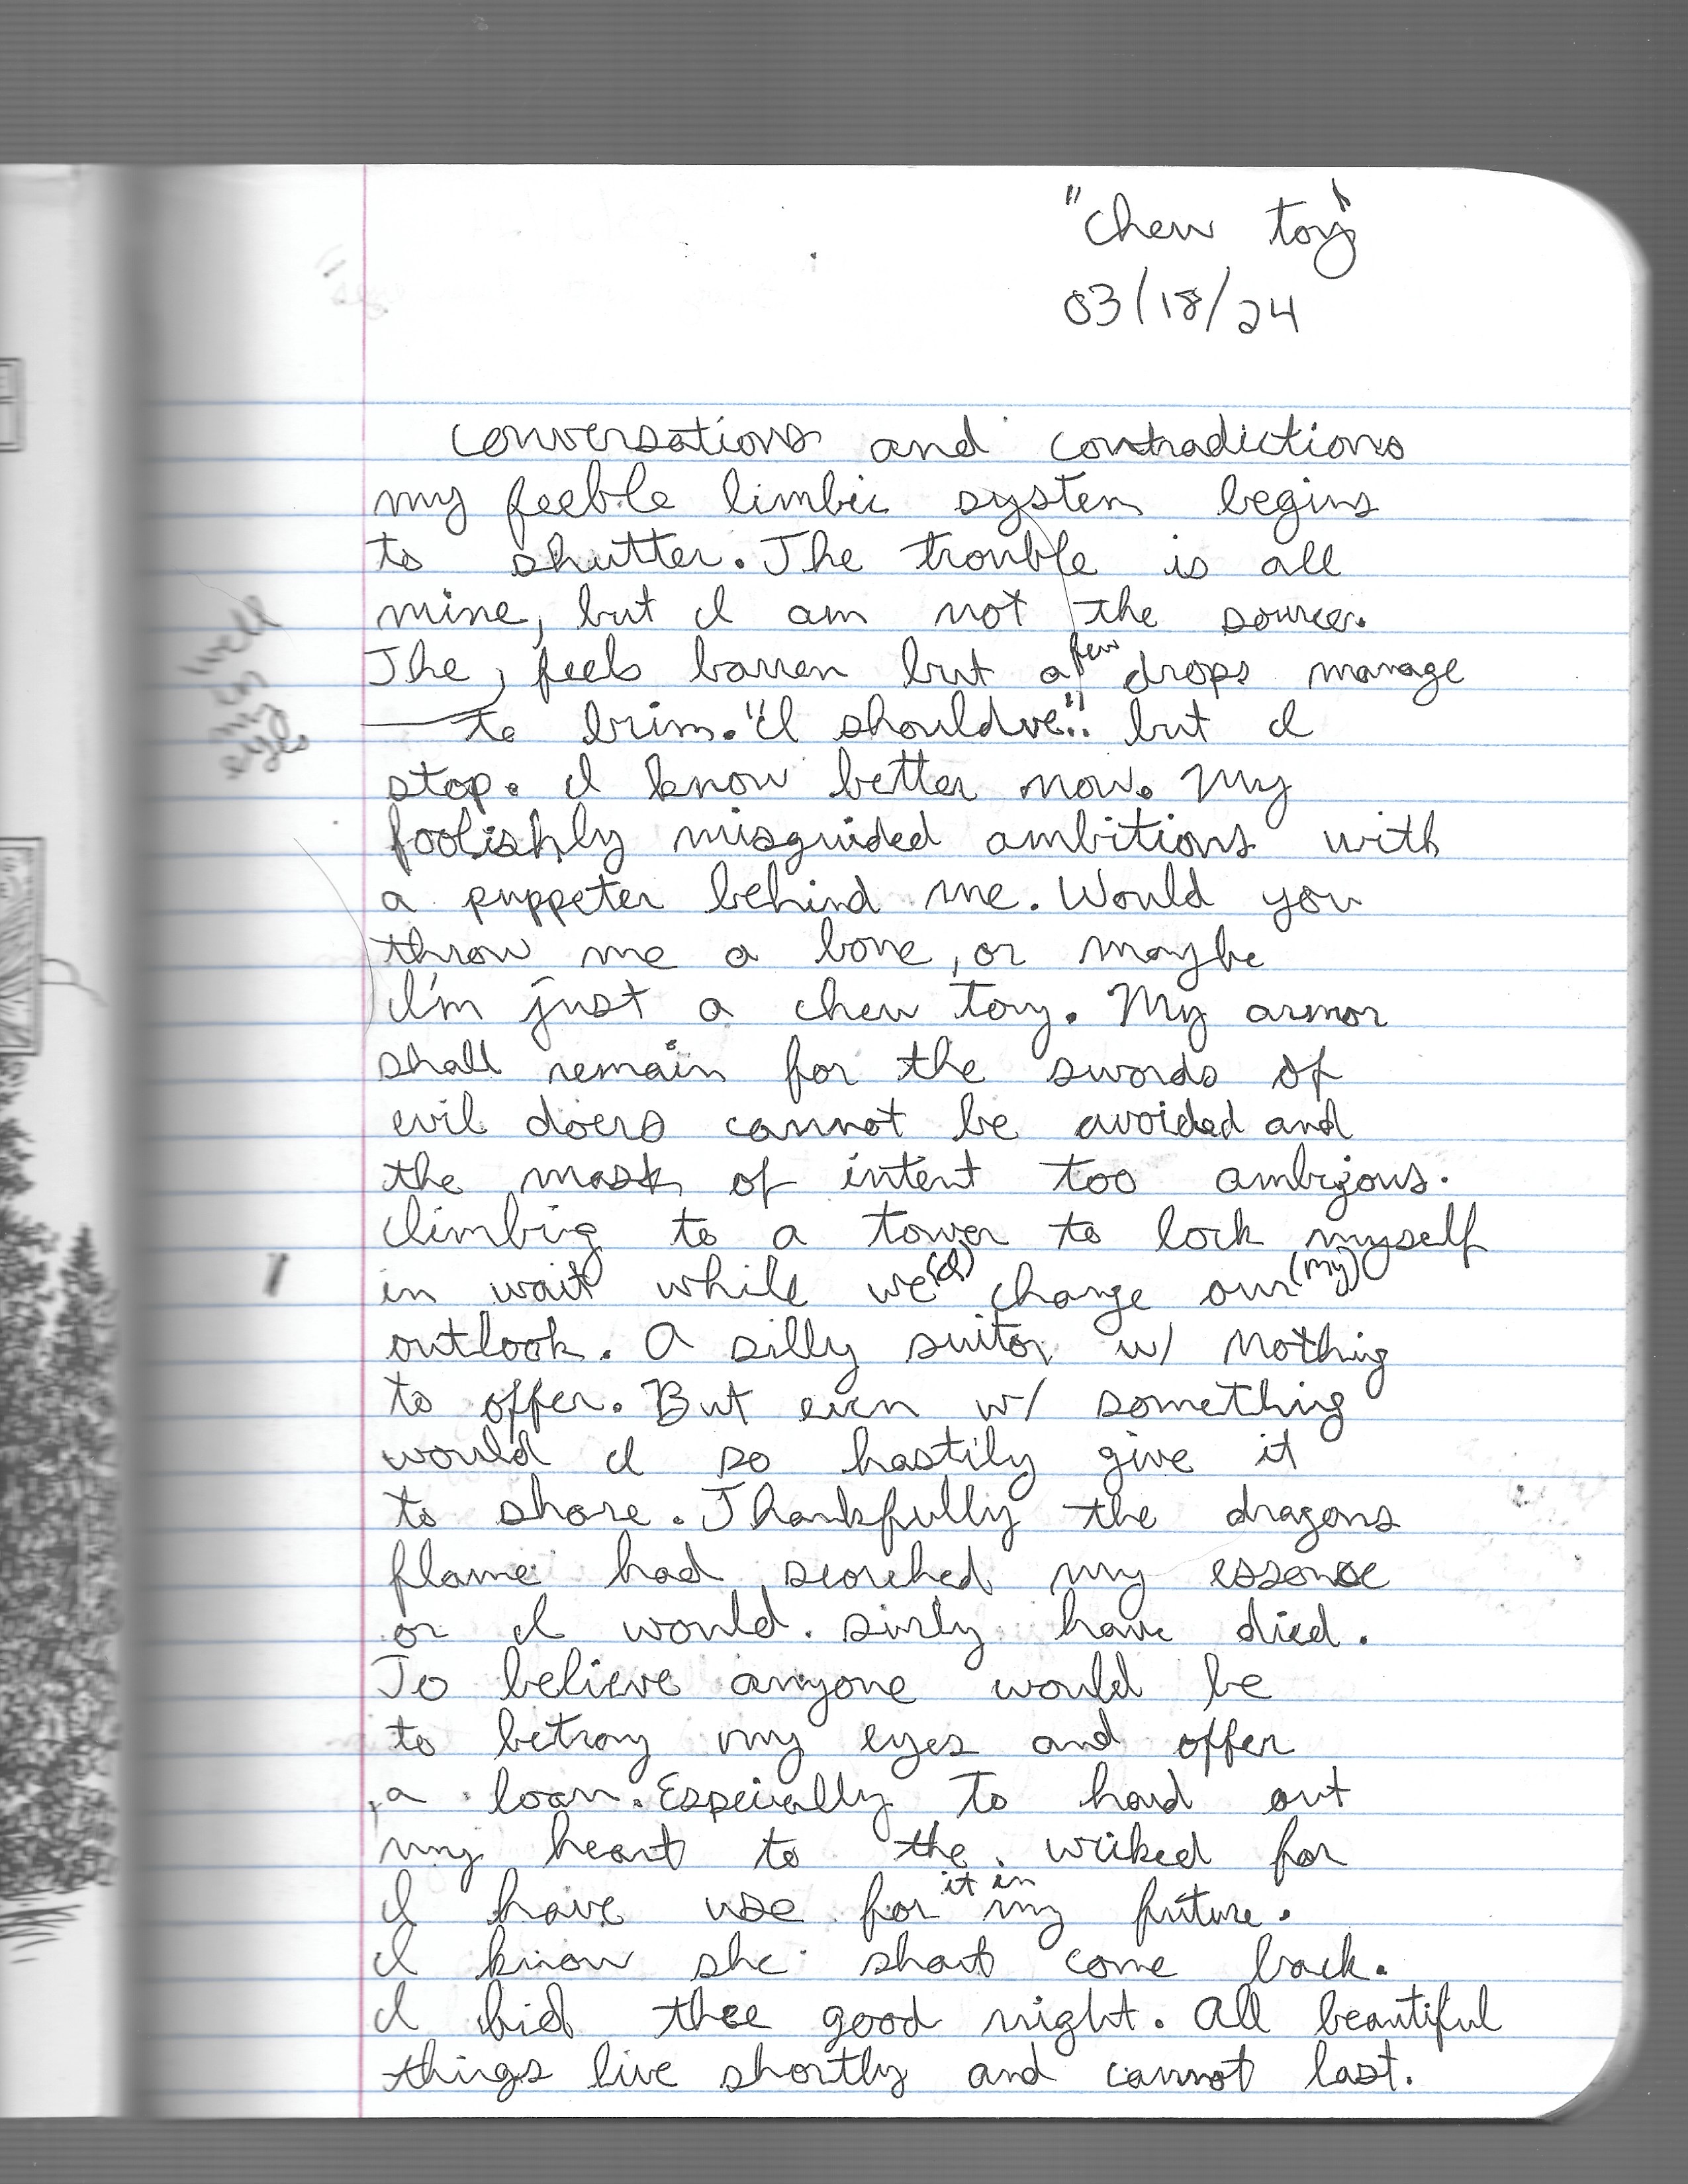 "Chew toy"
03/18/24
conversations and contradictions
my feeble limbic system begins
to shutter. The trouble is all
mine, but I am not the source.
The, feels barren but a few drops manage
well
in
my
eyes
to brim. "I shouldve.." but I
stop. I know better now. My
foolishly misguided ambitions with
a puppeter behind me. Would you
throw me a bone, or maybe
I'm just a chew toy. My armor
shall remain for the swords of
evil doers cannot be avoided and
the mask of intent too ambigous.
Climbing to a tower to lock myself
in wait while we (I) change our (my)
outlook. A silly suitor w/ Nothing
to offer. But even w/ something
would I so hastily give it
to share. Thankfully the dragons
flame had scorched my essence
or I would sirly have died.
To believe anyone would be
to betray my eyes and offer
a loan. Especially to hand out
my heart to the wicked for
I have use for it in my future.
I know she shant come back.
I bid thee good night. All beautiful
things live shortly and cannot last.